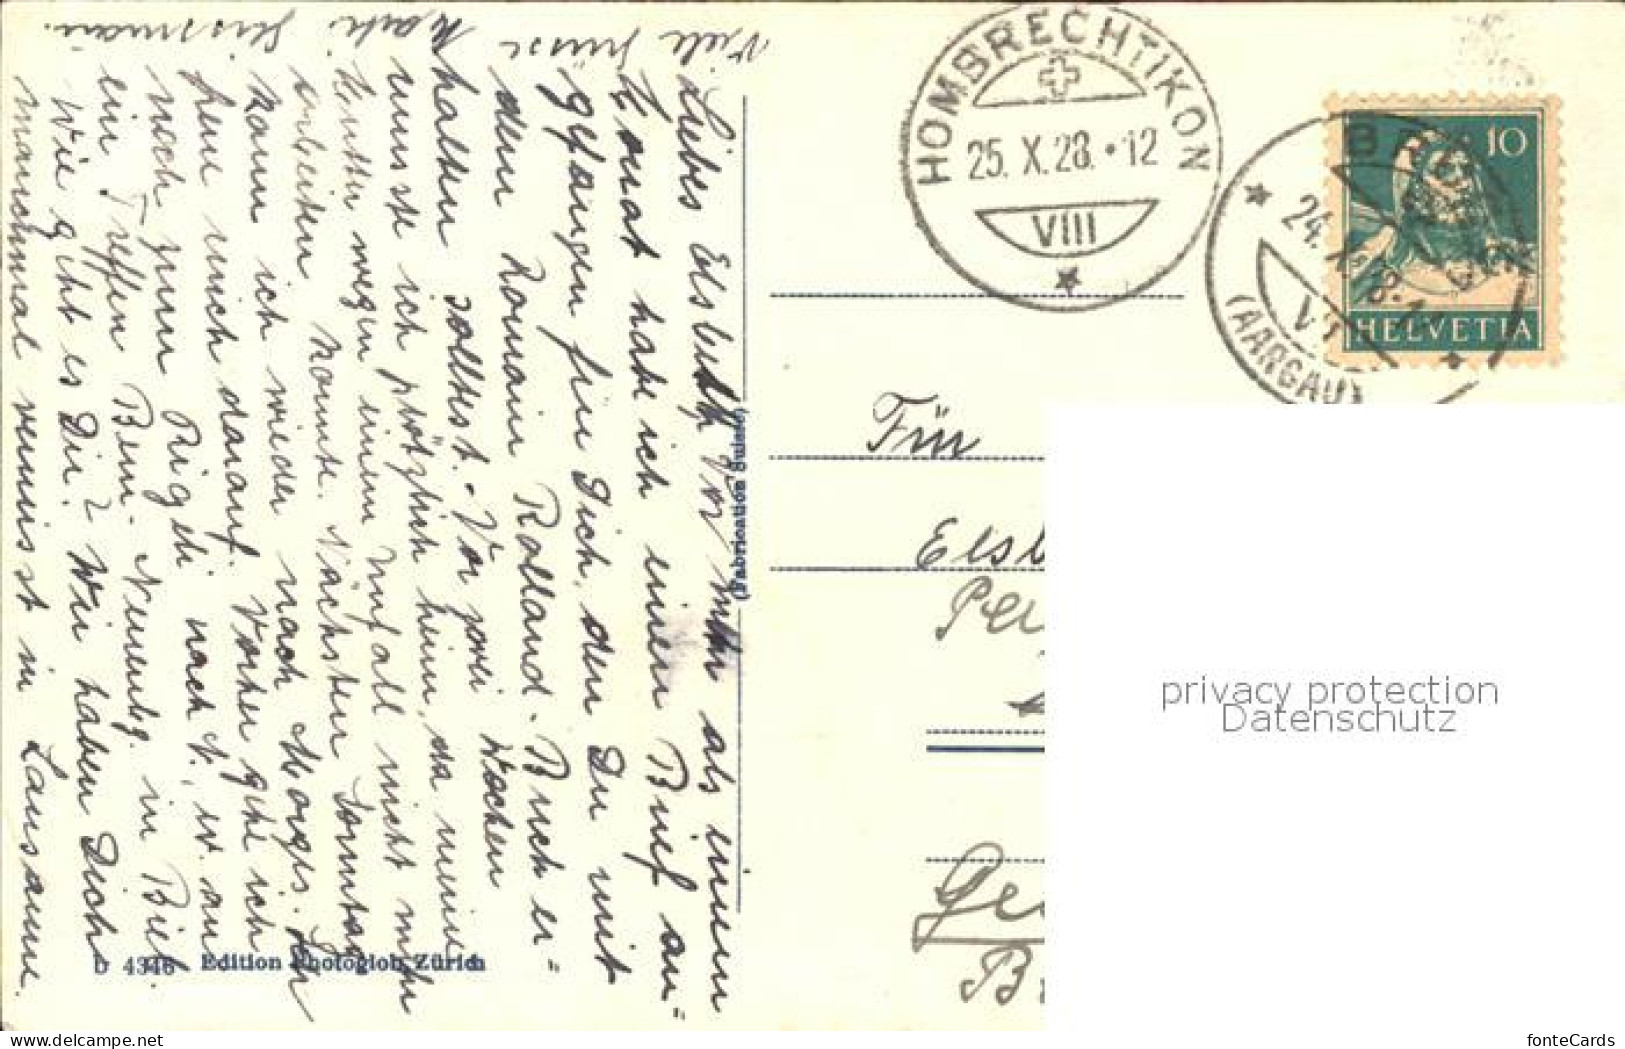 Liebes Elsbeth, Vor mehr als einem
Monat habe ich einen Brief an-
gefangen für Dich, den Du mit
dem Romain Rolland-Buch er-
halten solltest. Vor zwei Wochen
musste ich plötzlich heim, da meine
Mutter wegen einem Unfall nicht mehr
arbeiten konnte. Nächsten Sonntag
kann ich wieder nach Morges. Ich
freue mich darauf. Vorher gehe ich
noch zum Rigeli nach N. w. an
ein Treffen Bern-Neuenbg. in Biel.
Wie geht es Dir? Wir haben Dich
manchmal vermisst in Lausanne.
Viele Grüsse
(Fabrication Suisse)
4346 Edition Photoglob, Zürich
HOMBRECHTIKON
25. X. 28. • 12
VIII
24. X. 28.
VI
(AARGAU)
10
HELVETIA
Für
Elsb
Pe
Ge
B
privacy protection
Datenschutz
fonteCards